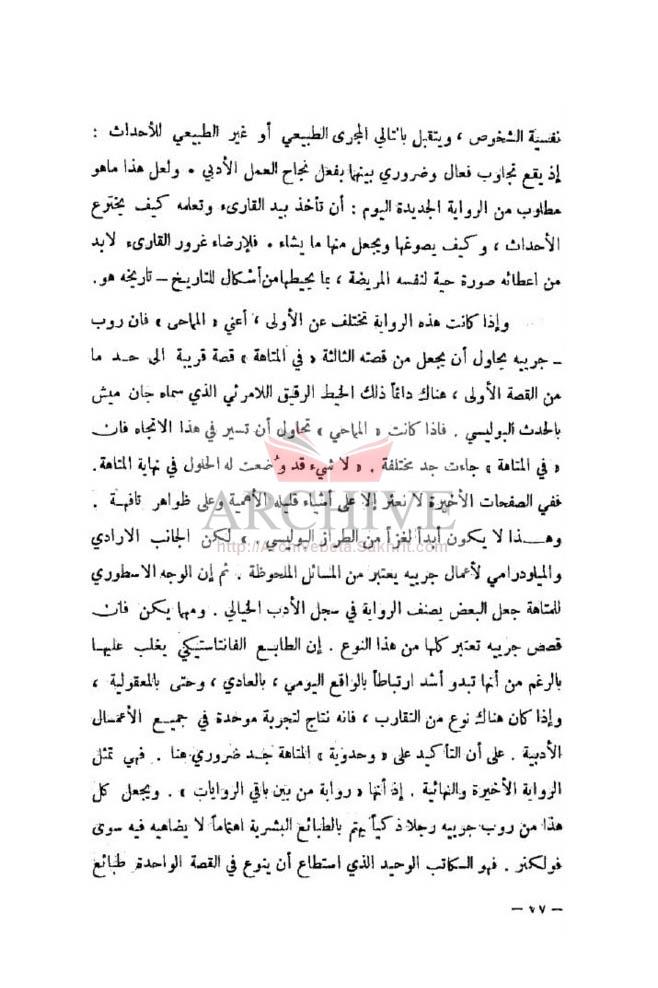 نفسية الشخوص ، ويتقبل بالتالي المجرى الطبيعي أو غير الطبيعي للأحداث :
إذ يقع تجاوب فعال وضروري بينها بفعل نجاح العمل الأدبي . ولعل هذا ماهو
مطلوب من الرواية الجديدة اليوم : أن تأخذ بيد القارىء وتعلمه كيف يخترع
الأحداث ، وكيف يصوغها ويجعل منها ما يشاء . فلإرضاء غرور القارىء لابد
من اعطائه صورة حية لنفسه المريضة ، بما يحيطها من أشكال للتاريخ – تاريخه هو.
وإذا كانت هذه الرواية تختلف عن الأولى ، أعني « المماحي » فان روب
– جرييه يحاول أن يجعل من قصته الثالثة « في المتاهة » قصة قريبة الى حد ما
من القصة الأولى ، هناك دائماً ذلك الخيط الرقيق اللامرئي الذي سماه جان ميش
بالحدث البوليسي . فاذا كانت « المماحي » تحاول أن تسير في هذا الاتجاه فان
« في المتاهة » جاءت جد مختلفة . « لا شيء قد وُضعت له الحلول في نهاية المتاهة.
ففي الصفحات الأخيرة لا نعثر إلا على أشياء قليلة الأهمية وعلى ظواهر تافهة .
وهذا لا يكون أبداً لغزاً من الطراز البوليسي . » لكن الجانب الارادي
والميلودرامي لأعمال جرييه يعتبر من المسائل الملحوظة . ثم إن الوجه الاسطوري
للمتاهة جعل البعض يصنف الرواية في سجل الأدب الخيالي . ومهما يكن فان
قصص جرييه تعتبر كلها من هذا النوع . إن الطابع الفانتاستيكي يغلب عليها
بالرغم من أنها تبدو أشد ارتباطاً بالواقع اليومي ، بالعادي ، وحتى بالمعقولية ،
وإذا كان هناك نوع من التقارب ، فانه نتاج لتجربة موحدة في جميع الأعمال
الأدبية . على أن التأكيد على « وحدوية » المتاهة جد ضروري هنا . فهي تمثل
الرواية الأخيرة والنهائية . إذ أنها « رواية من بين باقي الروايات » . ويجعل كل
هذا من روب جرييه رجلا ذكياً يهتم بالطبائع البشرية اهتماماً لا يضاهيه فيه سوى
فولكنر . فهو الكاتب الوحيد الذي استطاع أن ينوع في القصة الواحدة طبائع
– ٧٧ –
ARCHIVE
http://Archivebeta.Sakhrit.com